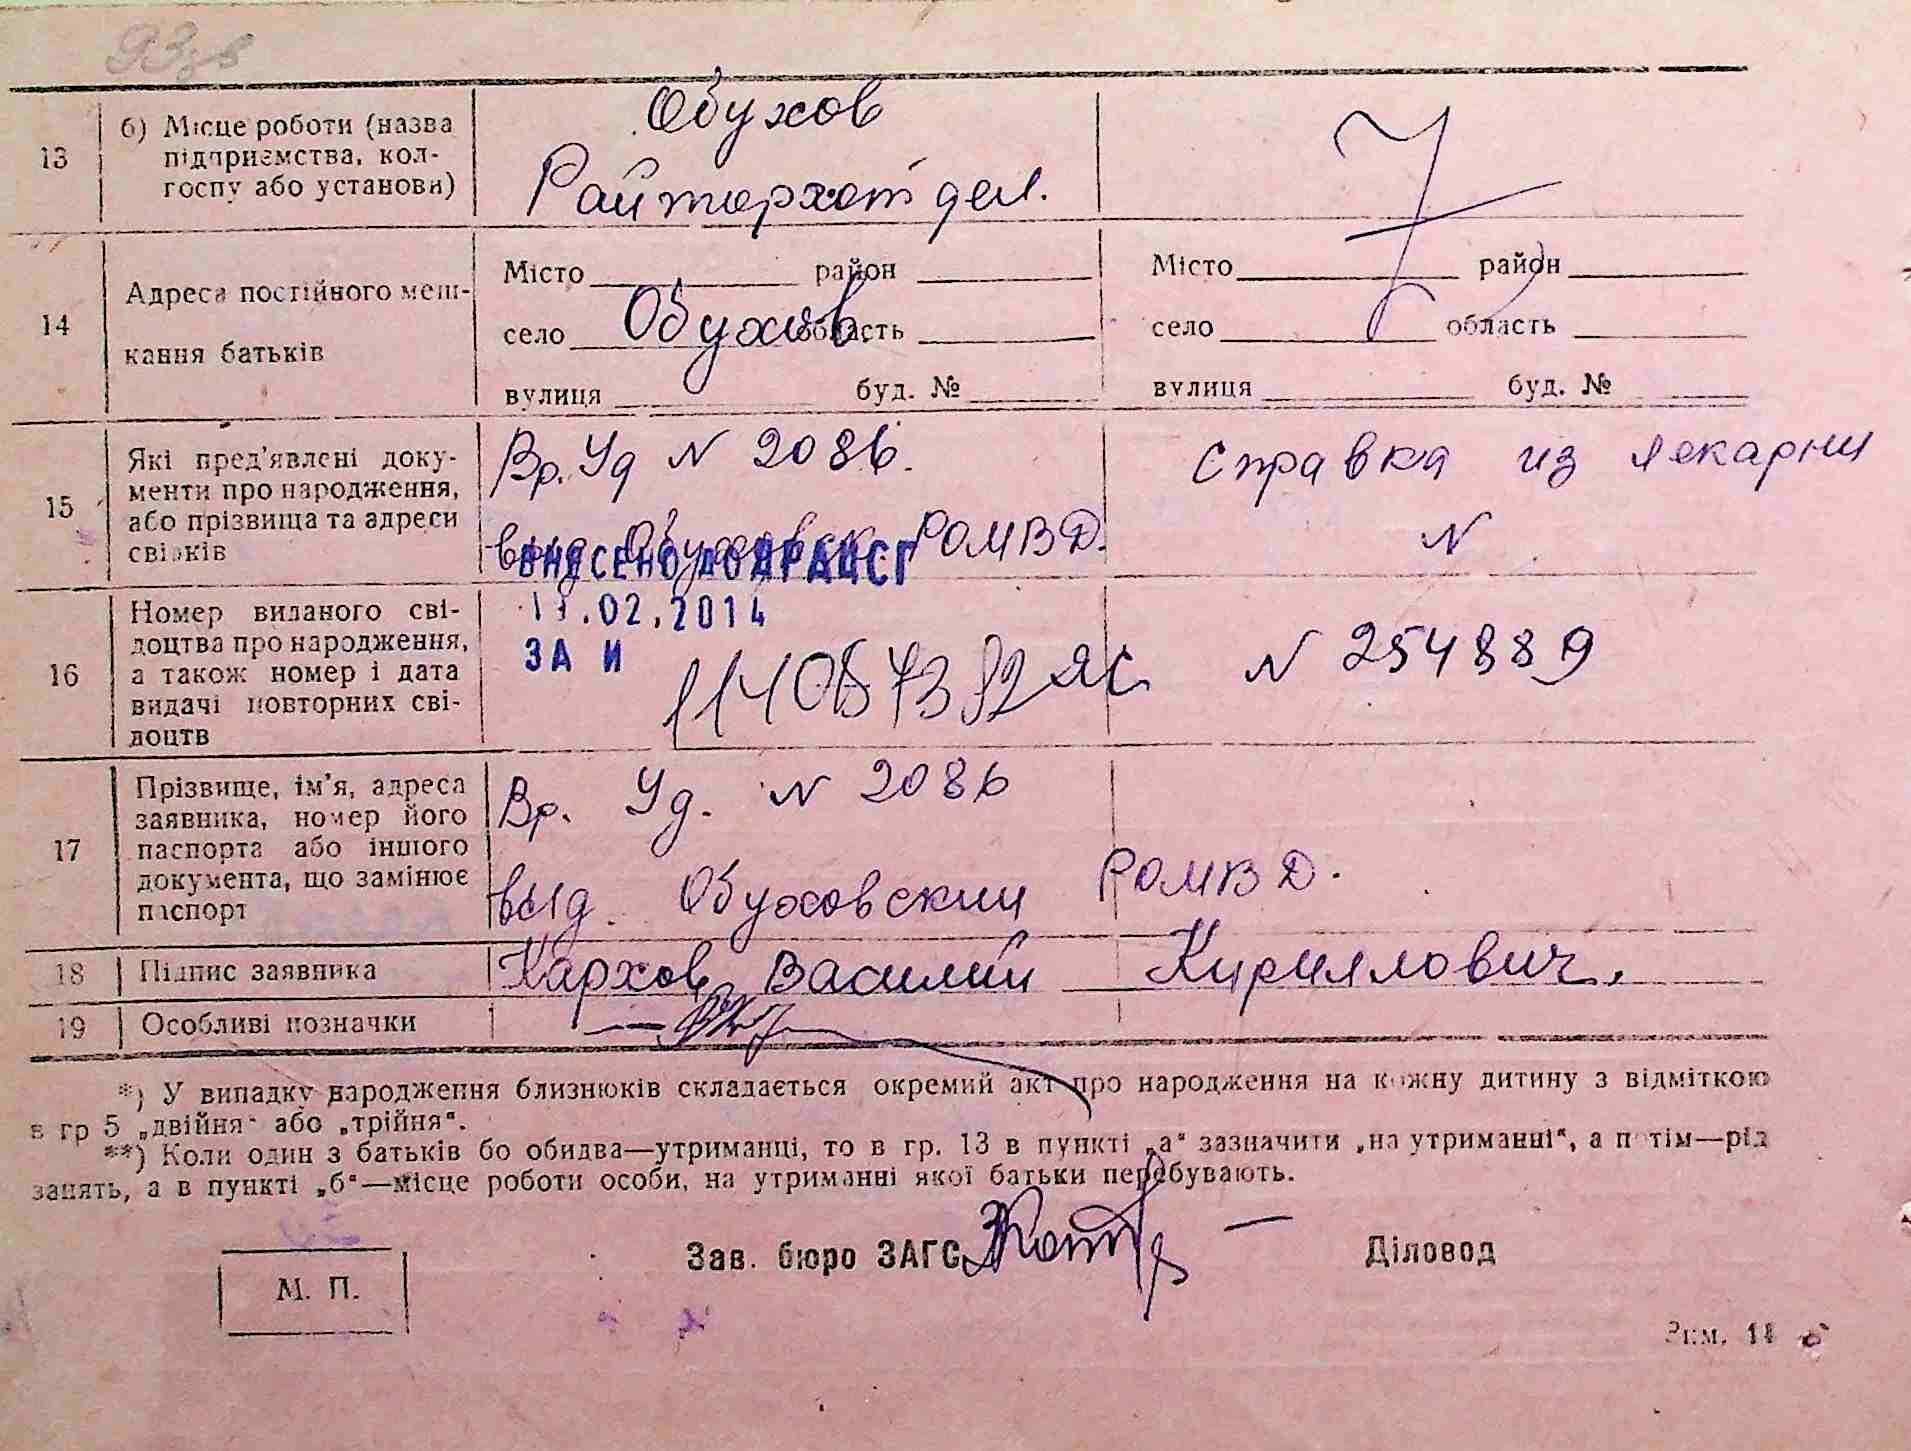 13
б) Місце роботи (назва
підприємства, кол-
госпу або установи)
Обухов
Райторхотдел.
14
Адреса постійного меш-
кання батьків
Місто район
село Обухов область
вулиця буд. №
Місто район
село область
вулиця буд. №
15
Які пред'явлені доку-
менти про народження,
або прізвища та адреси
свідків
Вр. Уд N 2086.
выд Обуховск. РОМВД.
Справка из лекарни
N
ВНЕСЕНО ДО ДРАЦСГ
11.02.2014
ЗА И
16
Номер виданого сві-
доцтва про народження,
а також номер і дата
видачі повторних сві-
доцтв
ЯС N 254889
17
Прізвище, ім'я, адреса
заявника, номер його
паспорта або іншого
документа, що замінює
паспорт
Вр. Уд. N 2086
выд. Обуховский РОМВД.
18
Підпис заявника
Кархов Василий Кириллович.
19
Особливі позначки
*) У випадку народження близнюків складається окремий акт про народження на кожну дитину з відміткою
в гр 5 „двійня" або „трійня".
**) Коли один з батьків бо обидва—утриманці, то в гр. 13 в пункті „а" зазначити „на утриманні", а потім—рід
занять, а в пункті „б"—місце роботи особи, на утриманні якої батьки перебувають.
Зав. бюро ЗАГС
Діловод
М. П.